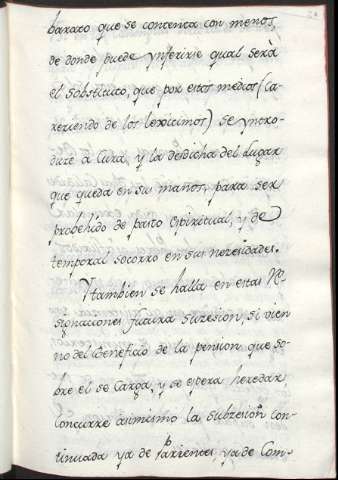 barato que se contenta con menos,
de donde puede ynferirse qual será
el sobstituto, que por estos medios (ca-
reziendo de los lexitimos) se yntro-
duze â Cura, y la desdicha del Lugar
que queda en sus manos, para ser
probehido de pasto espiritual, y de
temporal socorro en sus nezesidades.
Y tambien se halla en estas Re-
signaciones futura suzesion, si vien
no del Beneficio de la pension que so-
bre el se Carga, y se espera heredar,
Concurre asimismo la subzesion con-
tinuada ya de Parientes, ya de Com-